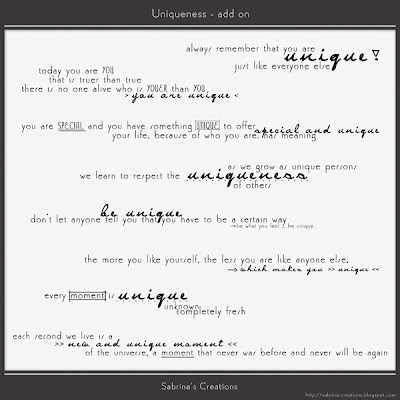 Uniqueness - add on
always remember that you are
unique!
just like everyone else
today you are YOU
that is truer than true
there is no one alive who is YOUER than YOU
> you are unique <
you are SPECIAL and you have something UNIQUE to offer
special and unique
your life, because of who you are, has meaning
as we grow as unique persons
we learn to respect the uniqueness
of others
be unique
don't let anyone tell you that you have to be a certain way
be what you feel & be unique
the more you like yourself, the less you are like anyone else,
which makes you >> unique <<
every moment is unique
unknown
completely fresh
each second we live is a
>> new and unique moment <<
of the universe, a moment that never was before and never will be again
Sabrina's Creations
http://sabrina-creations.blogspot.com